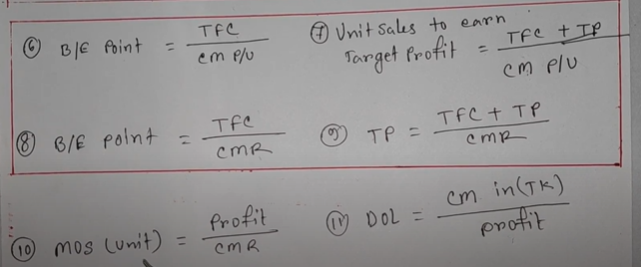 ⑥ B/E Point = TFC / CM P/U
⑦ Unit Sales to earn Target Profit = TFC + TP / CM P/U
⑧ B/E Point = TFC / CMR
⑨ TP = TFC + TP / CMR
⑩ MOS (Unit) = Profit / CMR
⑪ DOL = CM in (TK) / profit